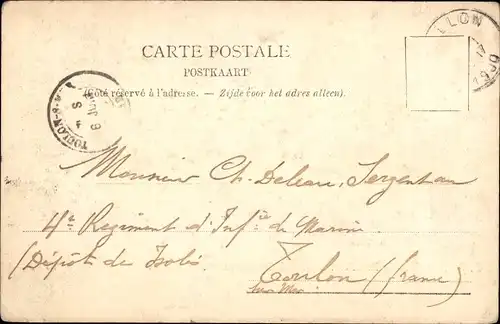 CARTE POSTALE
POSTKAART
(Côté réservé à l'adresse. – Zijde voor het adres alleen).
TOULON-S-M
Monsieur Ch. Deleau, Sergent au
4e Regiment d'Infie de Marine
(Dépôt de Isolés
Toulon (france)
sur Mer